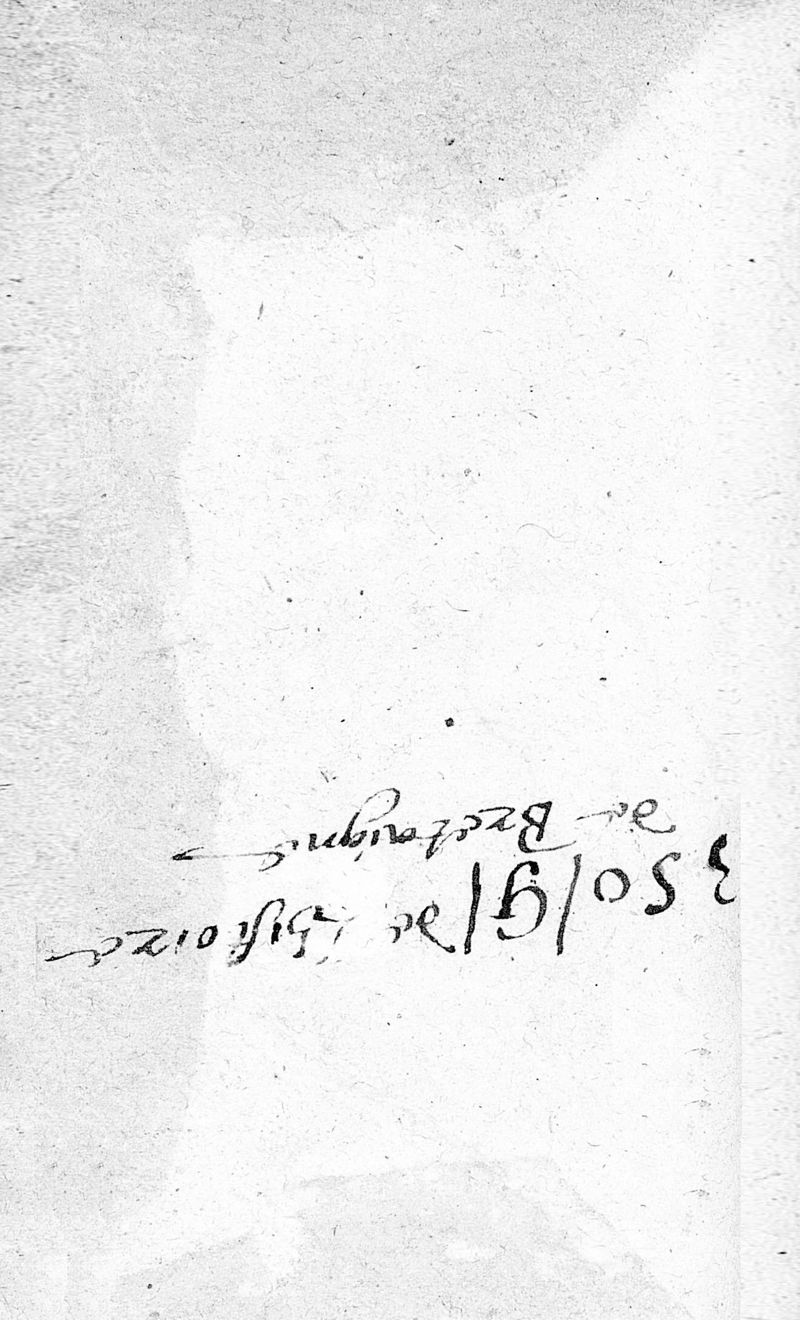 350 de histoire
de Bretaigne